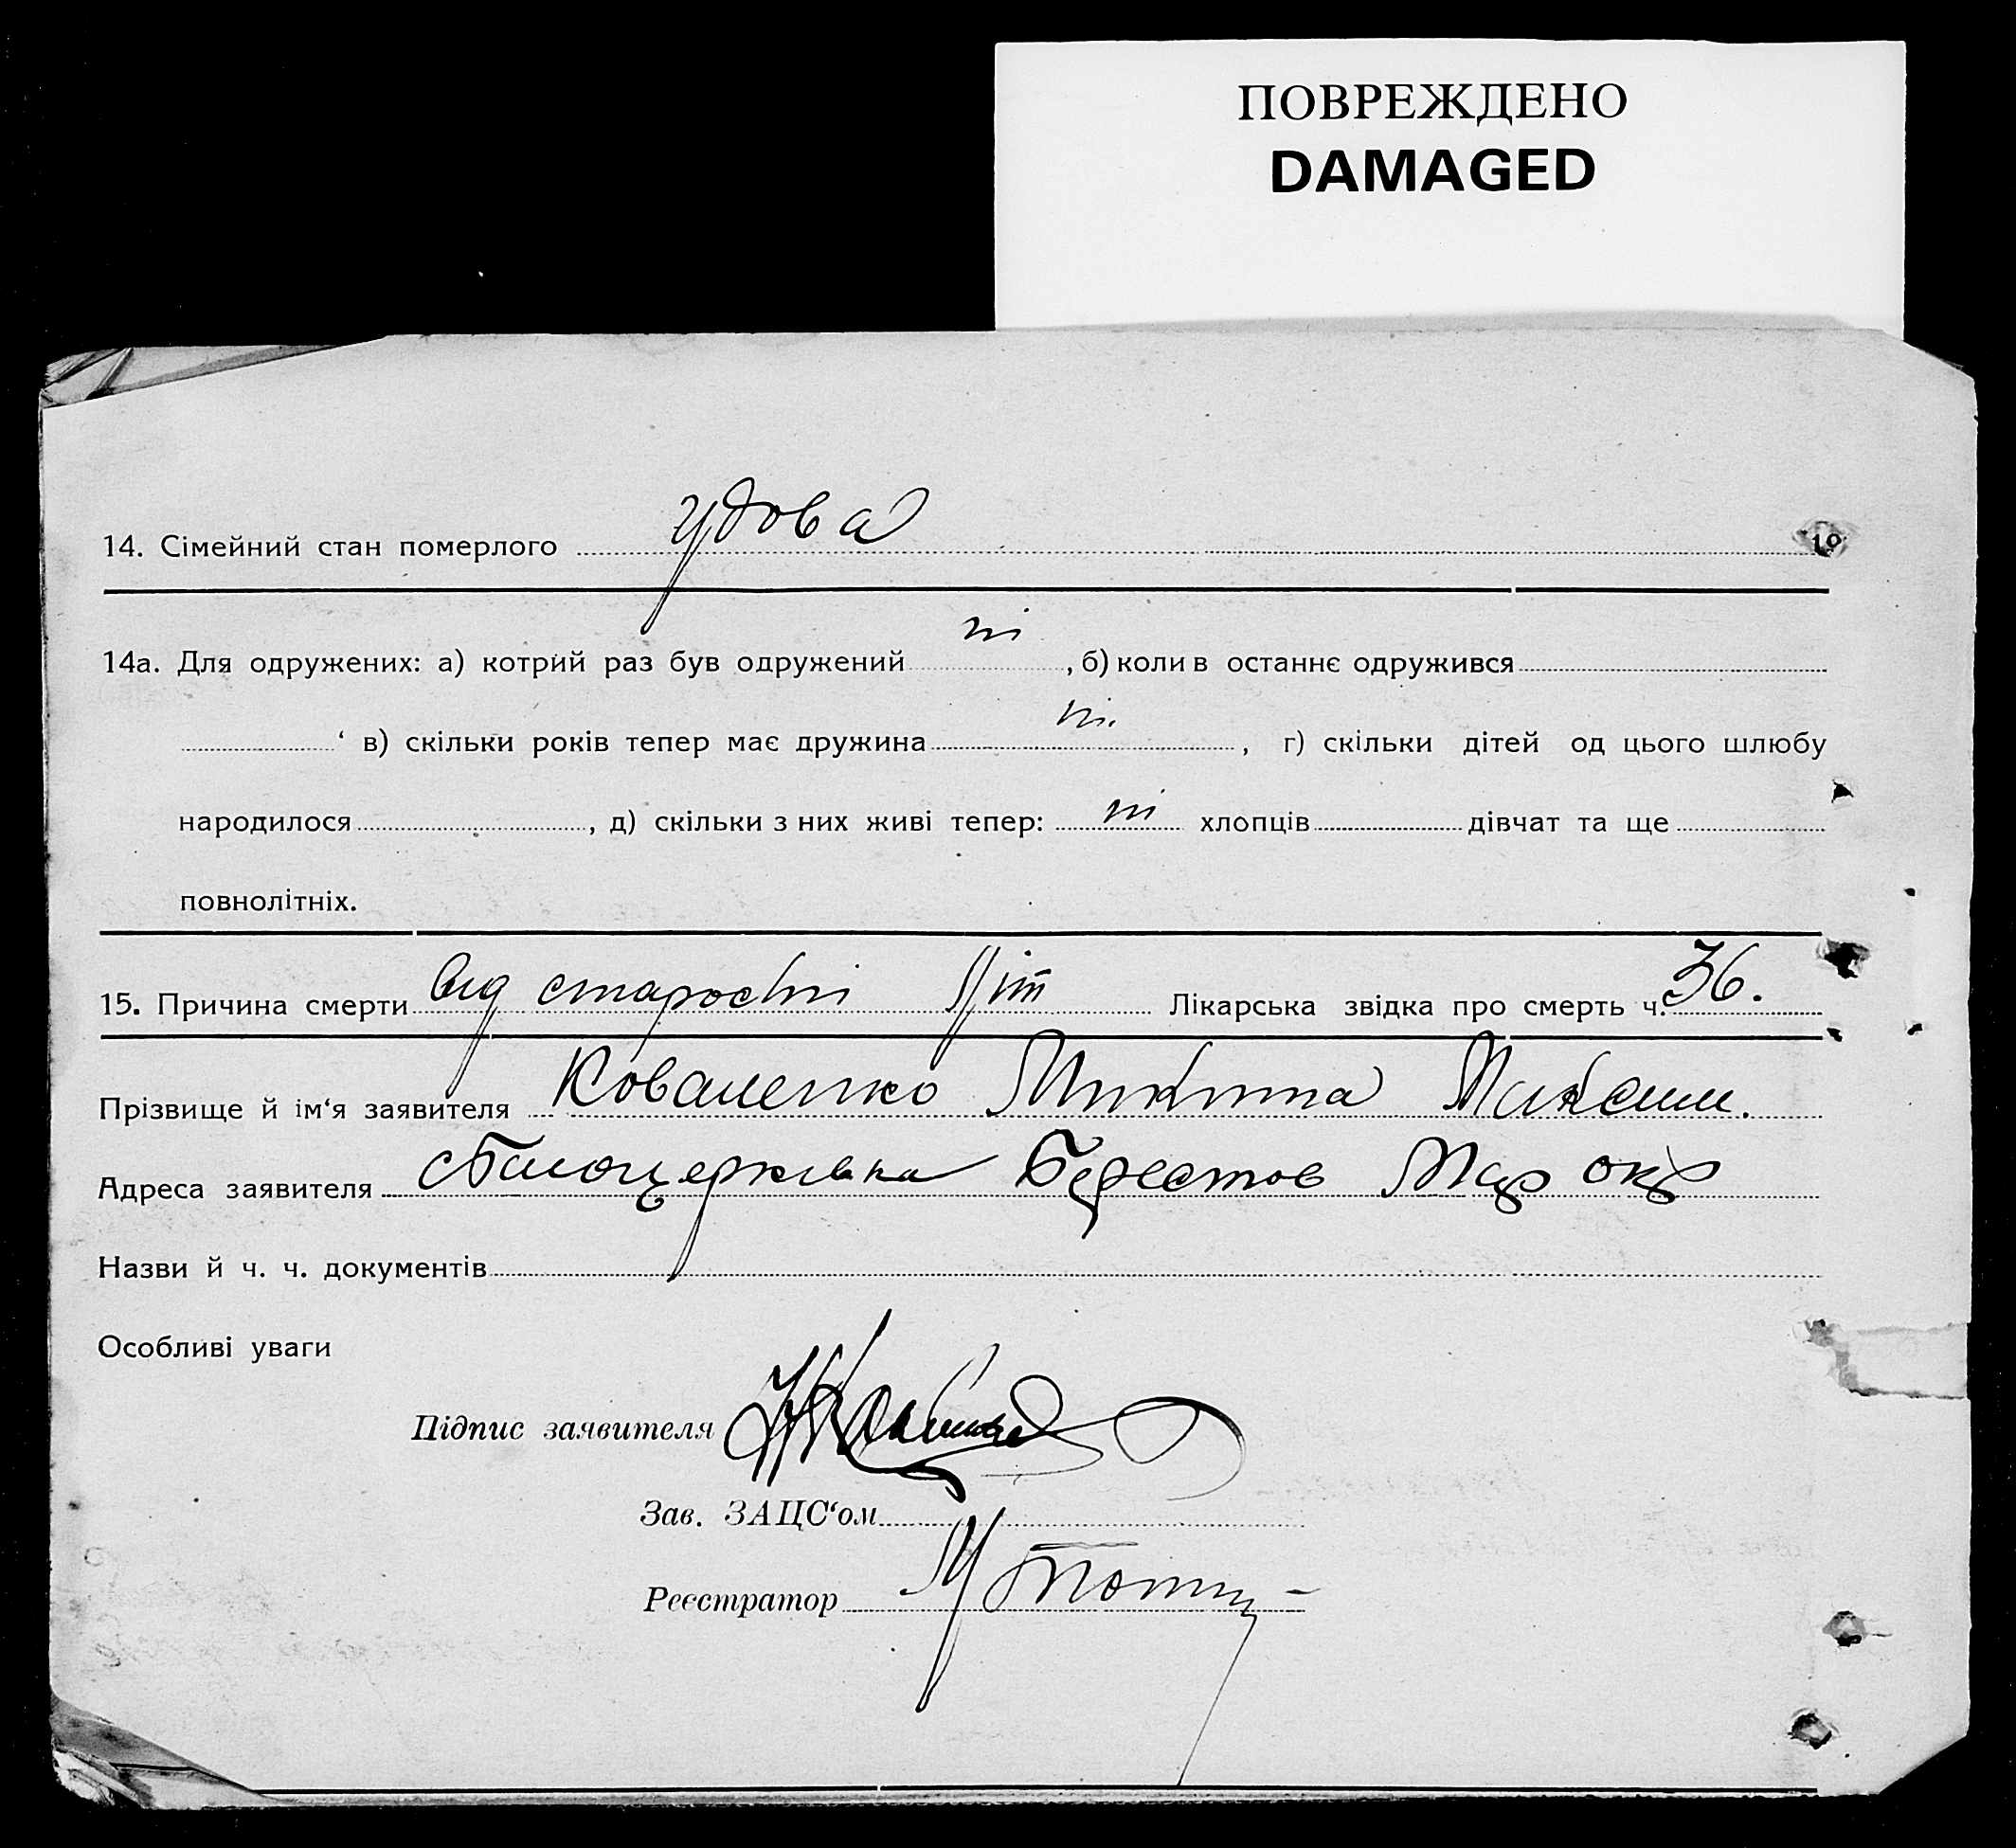 ПОВРЕЖДЕНО
DAMAGED
14. Сімейний стан померлого удова
14а. Для одружених: а) котрий раз був одружений ні, б) коли в останнє одружився
‘ в) скільки років тепер має дружина ні., г) скільки дітей од цього шлюбу
народилося, д) скільки з них живі тепер: ні хлопців дівчат та ще
повнолітніх.
15. Причина смерти від старости літ Лікарська звідка про смерть ч. 36.
Прізвище й ім‘я заявителя Коваленко Микита Максим.
Адреса заявителя Білоцерківка Берестов Мар окр
Назви й ч. ч. документів
Особливі уваги
Підпис заявителя
Зав. ЗАЦС‘ом
Реєстратор